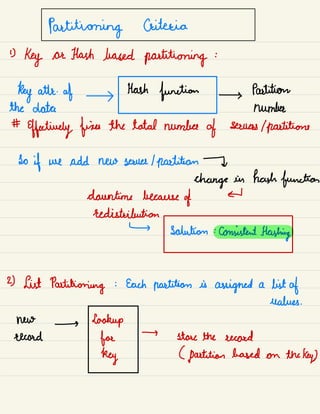 Partitioning Criteria
1) Key or Hash based partitioning :
Key attr. of the data → Hash function → Partition number
# Effectively fixes the total number of servers/partitions
So if we add new server/partition
change in hash function
downtime because of
redistribution
Solution : Consistent Hashing
2) List Partitioning : Each partition is assigned a list of
values.
new record → Lookup for key → store the record
(partition based on the key)